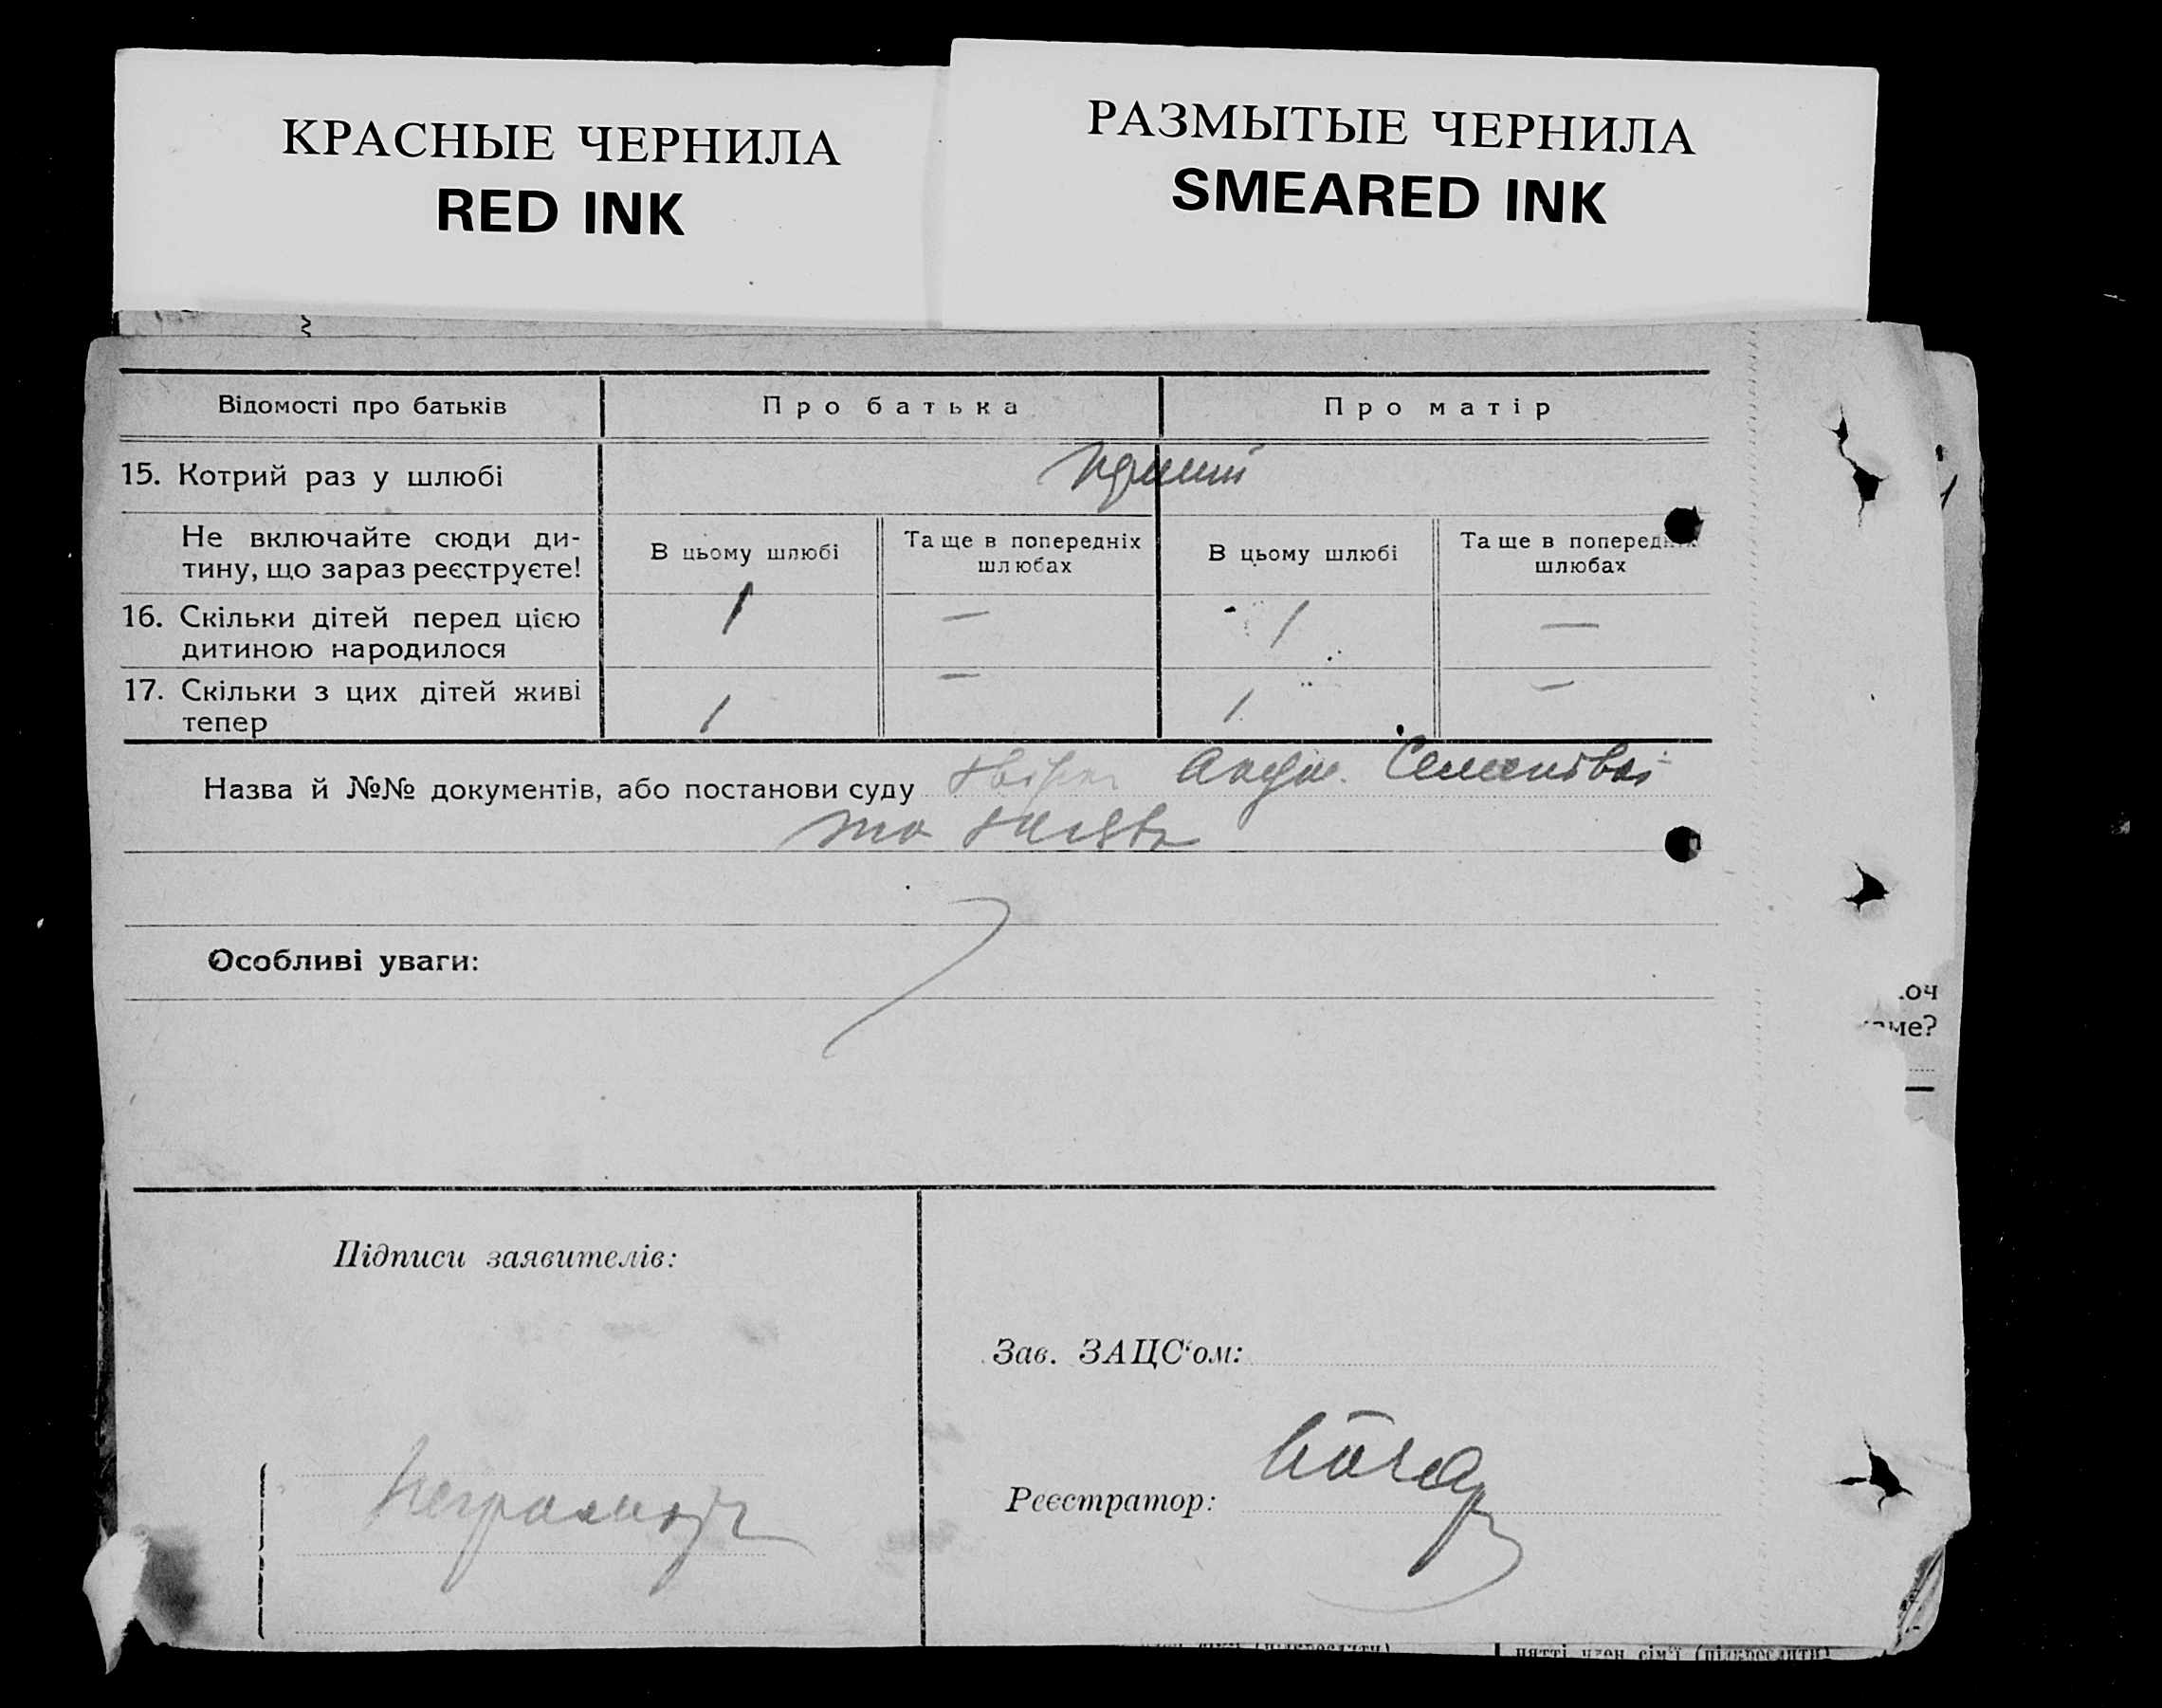 КРАСНЫЕ ЧЕРНИЛА
RED INK
РАЗМЫТЫЕ ЧЕРНИЛА
SMEARED INK
Відомості про батьків
Про батька
Про матір
15. Котрий раз у шлюбі
Не включайте сюди ди-
тину, що зараз реєструєте!
В цьому шлюбі
Та ще в попередніх
шлюбах
В цьому шлюбі
Та ще в попередніх
шлюбах
16. Скільки дітей перед цією
дитиною народилося
1 — 1 —
17. Скільки з цих дітей живі
тепер
1 — 1 —
Назва й №№ документів, або постанови суду
та
Особливі уваги:
Підписи заявителів:
Зав. ЗАЦС'ом:
Реєстратор:
оч
ме?
сім'ї (підкреслити)
член сім'ї (підкреслити)